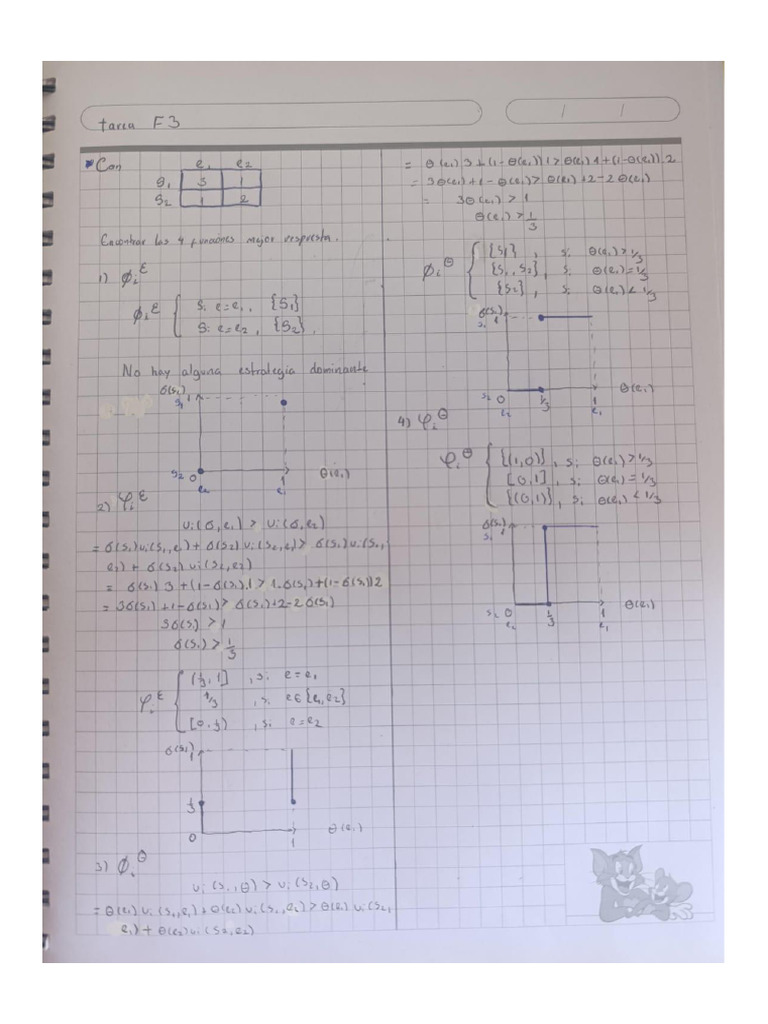 tarea F3
/ /
*Con
e₁ e₂
S₁ 3 1
S₂ 1 2
Encontrar las 4 funciones mejor respuesta.
1) ϕᵢᴱ
ϕᵢᴱ { Si e=e₁, {S₁}
Si e=e₂, {S₂}.
No hay alguna estrategia dominante
σ(s₁)
s₁ 1
s₂ 0 1 θ(e₁)
e₂ e₁
2) φᵢᴱ
uᵢ(σ,e₁) > uᵢ(σ,e₂)
= σ(s₁)uᵢ(s₁,e₁) + σ(s₂) uᵢ(s₂,e₁) > σ(s₁)uᵢ(s₁,
e₂) + σ(s₂) uᵢ(s₂,e₂)
= σ(s₁) 3 + (1-σ(s₁)) 1 > 1·σ(s₁) + (1-σ(s₁))2
= 3σ(s₁) + 1-σ(s₁) > σ(s₁)+2-2σ(s₁)
3σ(s₁) > 1
σ(s₁) > 1/3
φᵢᴱ { (1/3, 1] , si e=e₁
1/3 , si e∈{e₁,e₂}
[0, 1/3) , si e=e₂
σ(s₁)
1
1/3
0 1 θ(e₁)
3) ϕᵢᶿ
uᵢ(s₁,θ) > uᵢ(s₂,θ)
= θ(e₁) uᵢ(s₁,e₁) + θ(e₂) uᵢ(s₁,e₂) > θ(e₁) uᵢ(s₂,
e₁) + θ(e₂)uᵢ(s₂,e₂)
= θ(e₁) 3 + (1-θ(e₁)) 1 > θ(e₁) 1 + (1-θ(e₁)) 2
= 3θ(e₁) + 1 - θ(e₁) > θ(e₁) + 2 - 2θ(e₁)
= 3θ(e₁) > 1
θ(e₁) > 1/3
ϕᵢᶿ { {S₁} , si θ(e₁) > 1/3
{S₁, S₂}, si θ(e₁) = 1/3
{S₂} , si θ(e₁) < 1/3
σ(s₁)
s₁ 1
s₂ 0 1/3 1 θ(e₁)
e₂ e₁
4) φᵢᶿ
φᵢᶿ { {(1,0)} , si θ(e₁) > 1/3
[0,1] , si θ(e₁) = 1/3
{(0,1)} , si θ(e₁) < 1/3
σ(s₁)
s₁ 1
s₂ 0 1/3 1 θ(e₁)
e₂ e₁